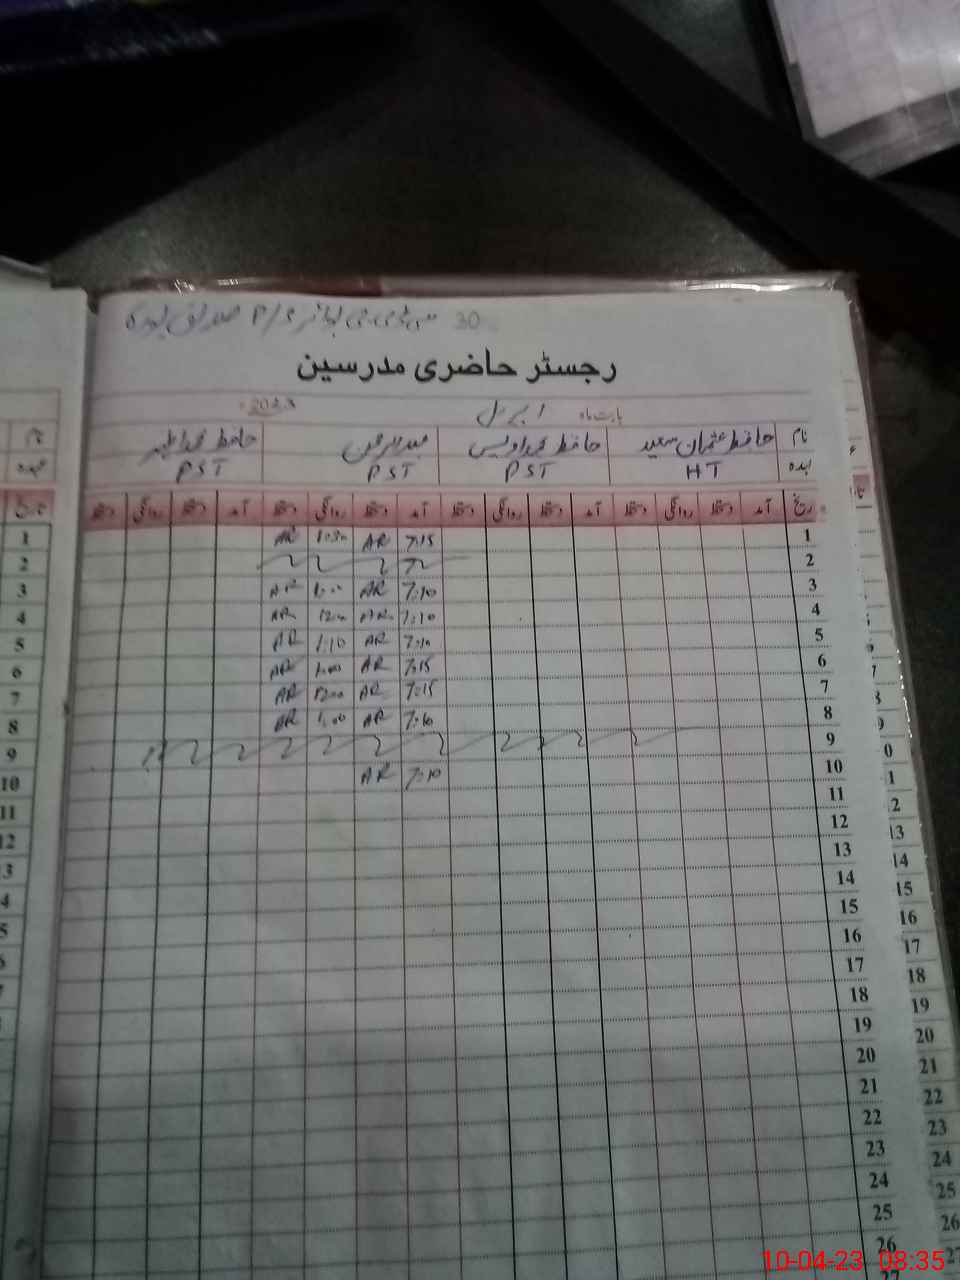 30 سی ڈی جی بوائز P/S صدیق پورہ
رجسٹر حاضری مدرسین
بابت ماہ اپریل 2023
نام حافظ عثمان سعید حافظ محمد اویس عبدالرحمن حافظ محمد اطہر
عہدہ HT PST PST PST
تاریخ آمد دستخط روانگی دستخط آمد دستخط روانگی دستخط آمد دستخط روانگی دستخط آمد دستخط روانگی دستخط
1 7:15 AR 1:30 AR
2
3 7:10 AR 1:00 AR
4 7:10 AR 1200 AR
5 7:10 AR 1:10 AR
6 7:15 AR 1:00 AR
7 7:15 AR 1200 AR
8 7:10 AR 1:00 AR
9
10 7:10 AR
11
12
13
14
15
16
17
18
19
20
21
22
23
24
25
26
نام
عہدہ
تاریخ
1
2
3
4
5
6
7
8
9
10
11
12
10-04-23 08:35